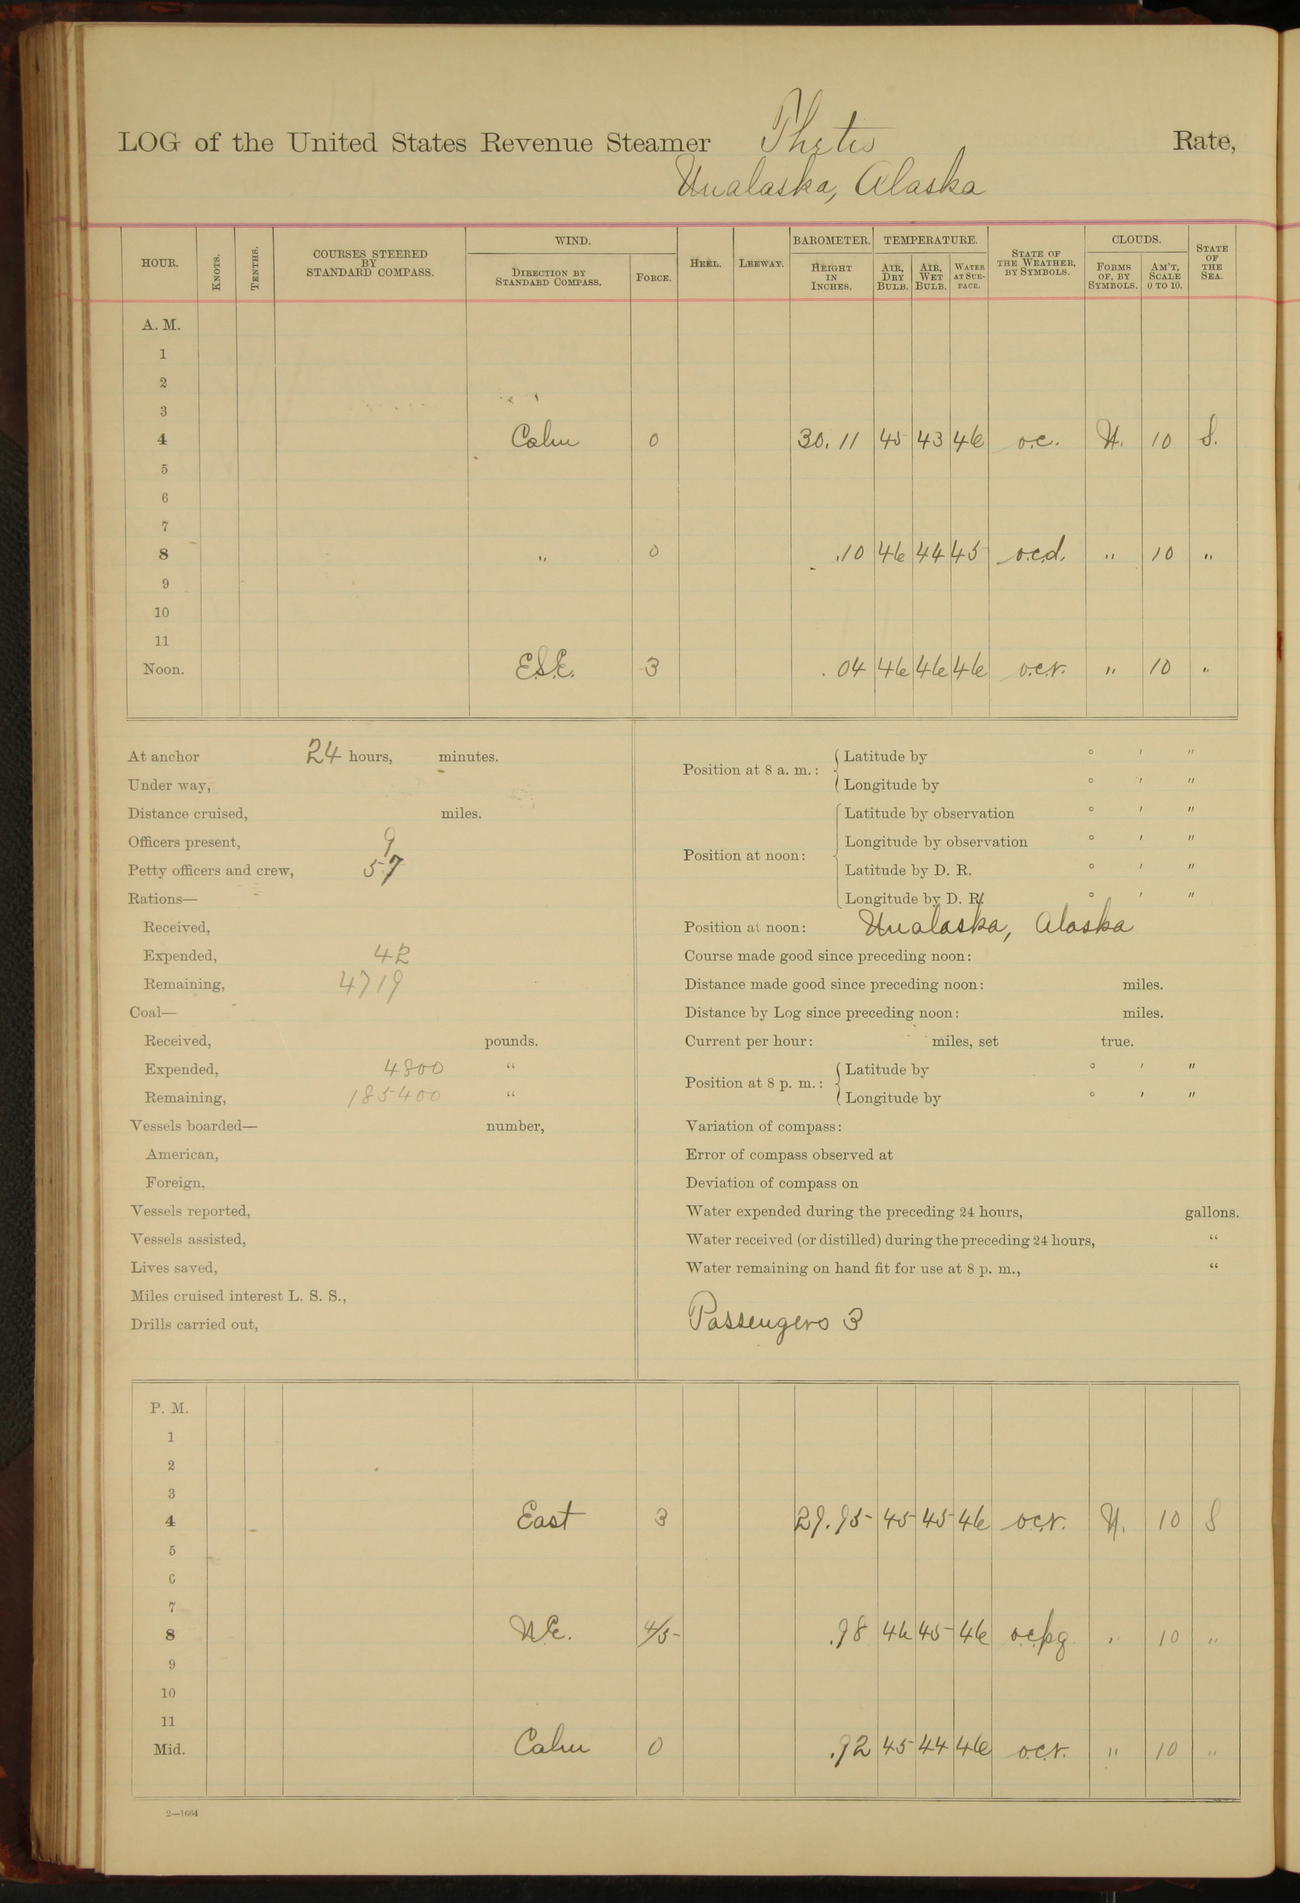 LOG of the United States Revenue Steamer Thetis Rate,
Unalaska, Alaska
HOUR. KNOTS. TENTHS. COURSES STEERED BY STANDARD COMPASS. WIND. DIRECTION BY STANDARD COMPASS. FORCE. HEEL. LEEWAY. BAROMETER. HEIGHT IN INCHES. TEMPERATURE. AIR, DRY BULB. AIR, WET BULB. WATER AT SURFACE. STATE OF THE WEATHER, BY SYMBOLS. CLOUDS. FORMS OF, BY SYMBOLS. AM'T, SCALE 0 TO 10. STATE OF THE SEA.
A. M.
1
2
3
4 Calm 0 30.11 45 43 46 o.c. N. 10 S.
5
6
7
8 " 0 .10 46 44 45 o.c.d. " 10 "
9
10
11
Noon. E.S.E. 3 .04 46 46 46 o.c.r. " 10 "
At anchor 24 hours, minutes.
Under way,
Distance cruised, miles.
Officers present, 9
Petty officers and crew, 57
Rations—
Received,
Expended, 42
Remaining, 4719
Coal—
Received, pounds.
Expended, 4800 "
Remaining, 185400 "
Vessels boarded— number,
American,
Foreign,
Vessels reported,
Vessels assisted,
Lives saved,
Miles cruised interest L. S. S.,
Drills carried out,
Position at 8 a. m.: Latitude by ° ′ ″
Longitude by ° ′ ″
Position at noon: Latitude by observation ° ′ ″
Longitude by observation ° ′ ″
Latitude by D. R. ° ′ ″
Longitude by D. R. ° ′ ″
Position at noon: Unalaska, Alaska
Course made good since preceding noon:
Distance made good since preceding noon: miles.
Distance by Log since preceding noon: miles.
Current per hour: miles, set true.
Position at 8 p. m.: Latitude by ° ′ ″
Longitude by ° ′ ″
Variation of compass:
Error of compass observed at
Deviation of compass on
Water expended during the preceding 24 hours, gallons.
Water received (or distilled) during the preceding 24 hours, "
Water remaining on hand fit for use at 8 p. m., "
Passengers 3
P. M.
1
2
3
4 East 3 29.95 45 45 46 o.c.r. N. 10 S
5
6
7
8 N.E. 4/5 .98 46 45 46 o.c.p.g " 10 "
9
10
11
Mid. Calm 0 .92 45 44 46 o.c.r. " 10 "
2—1664